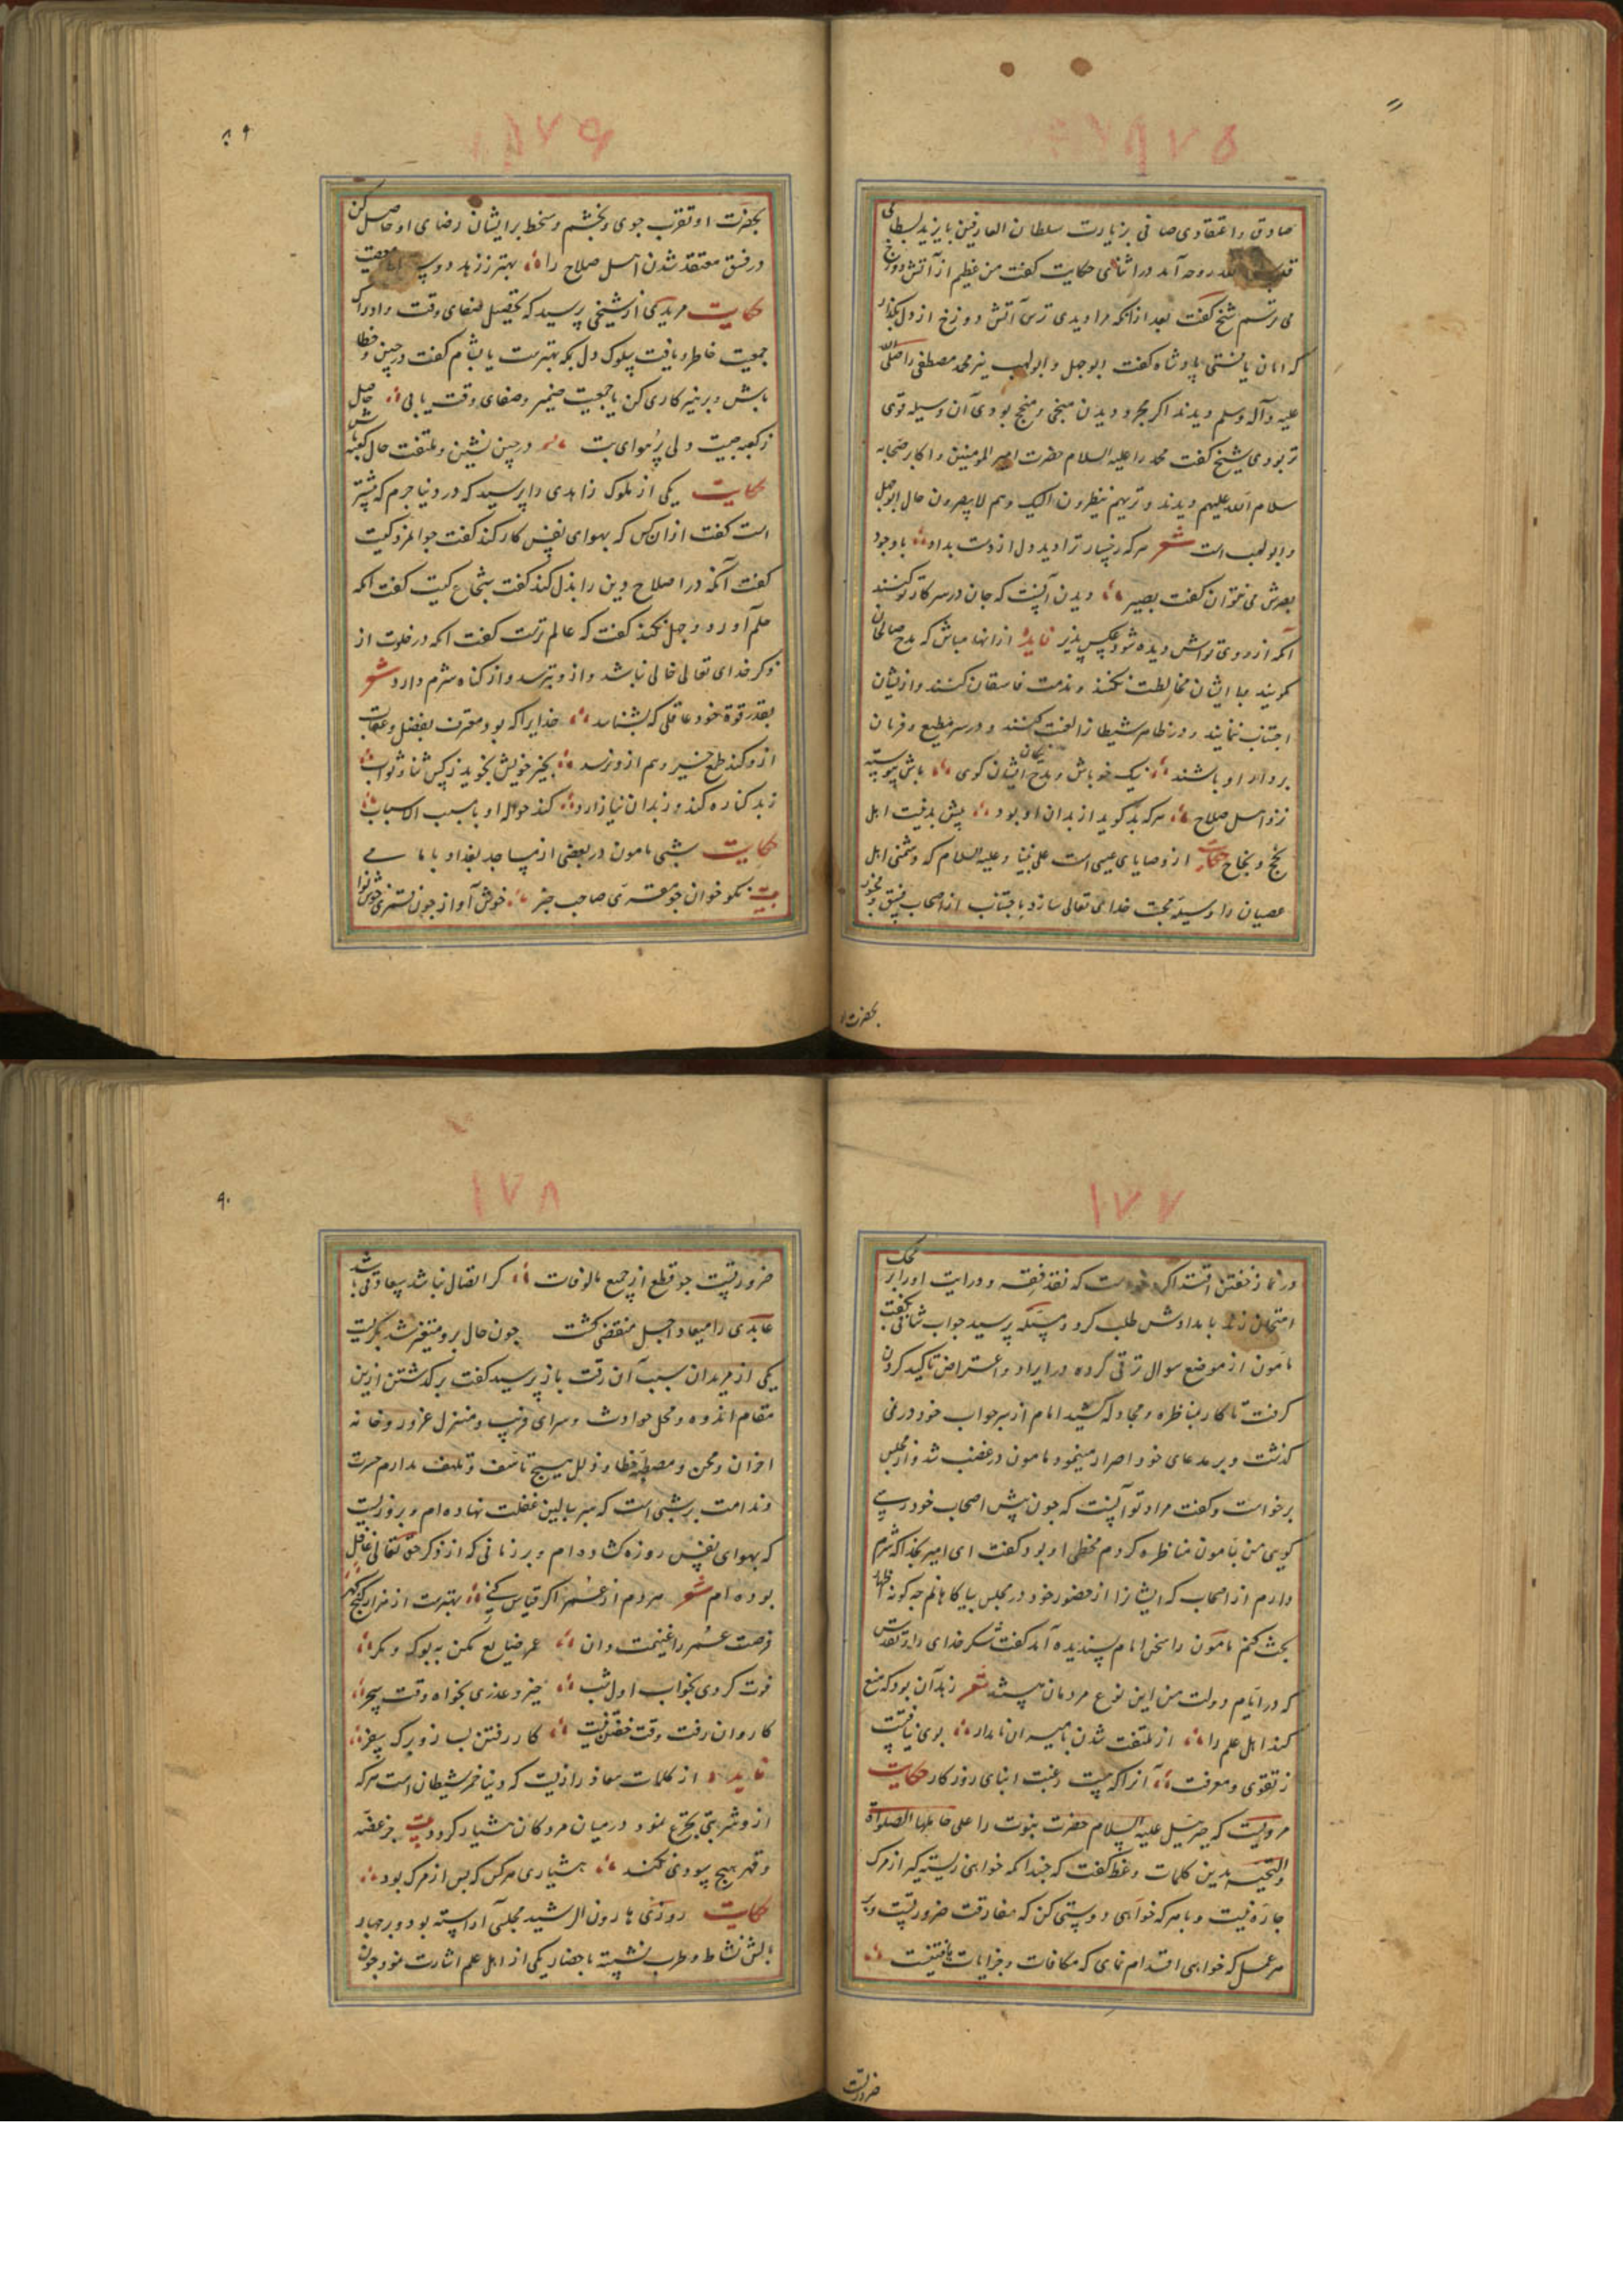 ۱۷۵
صادق و اعتقادی صافی بزیارت سلطان العارفین بایزید بسطامی
روحه آمد در اثنای حکایت گفت من عظیم از آتش دوزخ
می ترسم شیخ گفت بعد از آنکه مرا دیدی ترس آتش دوزخ از دل بگذار
که امان یافتی پادشاه گفت ابوجهل و ابولهب نیز محمد مصطفی را صلی
علیه و آله وسلم دیدند اگر مجرد دیدن منجی و منجح بودی آن وسیله قوی
تر بودی شیخ گفت محمد را علیه السلام حضرت امیر المومنین و اکابر صحابه
سلام الله علیهم دیدند و تریهم ینظرون الیک وهم لایبصرون حال ابوجهل
و ابولهب است شعر هر که رخسار ترا دید و دل از دست بداد با وجود
بصرش می نتوان گفت بصیر دیدن آنست که جان در سر کار تو کنند
آنکه از روی تواش دیده شود عکس پذیر فایده از آنها مباش که مدح صالحان
گویند و با ایشان مخالطت نکنند و مذمت فاسقان کنند و از ایشان
اجتناب ننمایند و در ظاهر شیطان را لعنت کنند و در سر مطیع و فرمان
بردار او باشند نیک خو باش و مدح نیکان ایشان گوی باش پیوسته
نزد اهل صلاح هر که بد گوید از بدان او بود پیش بد نیت اهل
نجح و نجاح حکایت از وصایای عیسی است علی نبینا و علیه السلام که دشمنی اهل
عصیان را وسیله محبت خدای تعالی سازد باجتناب از اصحاب فسق و فجور
بحضرت او
۱۷۶
۸۹
بحضرت او تقرب جوی و بخشم و سخط بر ایشان رضای او حاصل کن
در فسق معتقد شدن اهل صلاح را بهتر ز زهد و معصیت
حکایت مریدی از شیخی پرسید که بتحصیل صفای وقت و ادراک
جمعیت خاطر و یافت بسلوک دل بمکه بهترست یا بشام گفت در چین و خطا
باش و بر نیز کاری کن تا جمعیت ضمیر و صفای وقت یابی حاصل
ز کعبه چیست دلی پر هوای بت در چین نشین و ملتفت حال کعبه باش
حکایت یکی از ملوک زاهدی را پرسید که در دنیا جرم که بیشتر
است گفت از آن کس که بهوای نفس کار کند گفت جوانمرد کیست
گفت آنکه در اصلاح دین را بذل کند گفت شجاع کیست گفت آنکه
حلم آورد و جهل نکند گفت که عالم ترست گفت آنکه در خلوت از
ذکر خدای تعالی خالی نباشد و ازو بترسد و از گناه شرم دارد شعر
بقدر قوة خود عاقلی که بشناسد خدایرا که بود معترف بفضل و عقاب
ازو کند طمع خیر و هم ازو ترسد بخیر خویش نجوید ز کس ثنا و ثواب
ز بد کناره کند وز بدان نیازارد کند حواله او با مسبب الاسباب
حکایت شبی مامون در بعضی از مساجد بغداد با ما می
بیت نکو خوان جو مقری صاحب خبر خوش آواز چون قمری خوش نوا
۱۷۷
در نماز خفتن اقتدا کرد خواست که نقد فقه و درایت او را بر محک
امتحان زند بامدادش طلب کرد و مسئله پرسید جواب شافی گفت
مامون از موضع سوال ترقی کرده در ایراد و اعتراض تاکید کردن
گرفت تا کار بمناظره و مجادله کشید امام از سر جواب خود در نمی
گذشت و بر مدعای خود اصرار مینمود مامون در غضب شد و از مجلس
برخواست و گفت مراد تو آنست که چون پیش اصحاب خود رسی
گویی من بامون مناظره کردم مخطی او بود گفت ای امیر بخدا که شرم
دارم از اصحاب که ایشانرا از حضور خود در مجلس بیاگاهانم چه گونه اظهار
بحث کنم مامون را سخن امام پسندیده آمد گفت شکر خدای را و تقدس
که در ایام دولت من این نوع مردمان هستند شعر زهد آن بود که منع
کند اهل علم را از ملتفت شدن بامیران نامدار بوی نیافتست
ز تقوی و معرفت آنرا که هست رغبت ابنای روزگار حکایت
مرویست که جبرئیل علیه السلام حضرت نبوت را علی حاملها الصلوة
والتحیه بدین کلمات وعظ گفت که چندانکه خواهی زیستی که از مرگ
چاره نیست و با هر که خواهی دوستی کن که مفارقت ضروریست و بر
هر عمل که خواهی اقدام نمای که مکافات و جزایات یافتنیست
ضروریست
۱۷۸
۹۰
ضروریست جو قطع از جمیع مالوفات گر اتصال نباشد بهادقی باشد
عابدی را میعاد اجل منقضی گشت چون حال برو متغیر شد بگریست
یکی از مریدان سبب آن رقت باز پرسید گفت بر گذشتن ازین
مقام اندوه و محل حوادث و سرای فریب و منزل غرور و خانه
احزان و محن و مصطبه خطا و زلل هیچ تاسف و تلهف ندارم حسرت
و ندامت بر شبی است که سر ببالین غفلت نهاده ام و بر روزیست
که بهوای نفس روزه گشاده ام و بر زمانی که از ذکر حق تعالی غافل
بوده ام شعر هر دم از عمر اگر قیاس کنی بهترست از هزار گنج گهر
فرصت عمر را غنیمت دان عمر ضایع مکن به بوک و مگر
فوت کردی بخواب اول شب خیز و عذری بخواه وقت سحر
کاروان رفت وقت خفتن نیست کار رفتن بساز و برگ سفر
فایده از کلمات معاذ رازیست که دنیا خمر شیطان است هر که
ازو شربتی تجرع نمود در میان مردگان هشیار گردد بیت جز غصه
و قهر هیچ سودی نکند هشیاری هر کس که پس از مرگ بود
حکایت روزی هارون الرشید مجلسی آراسته بود و بر چهار
بالش نشاط و طرب نشسته باحضار یکی از اهل علم اشارت نمود چون